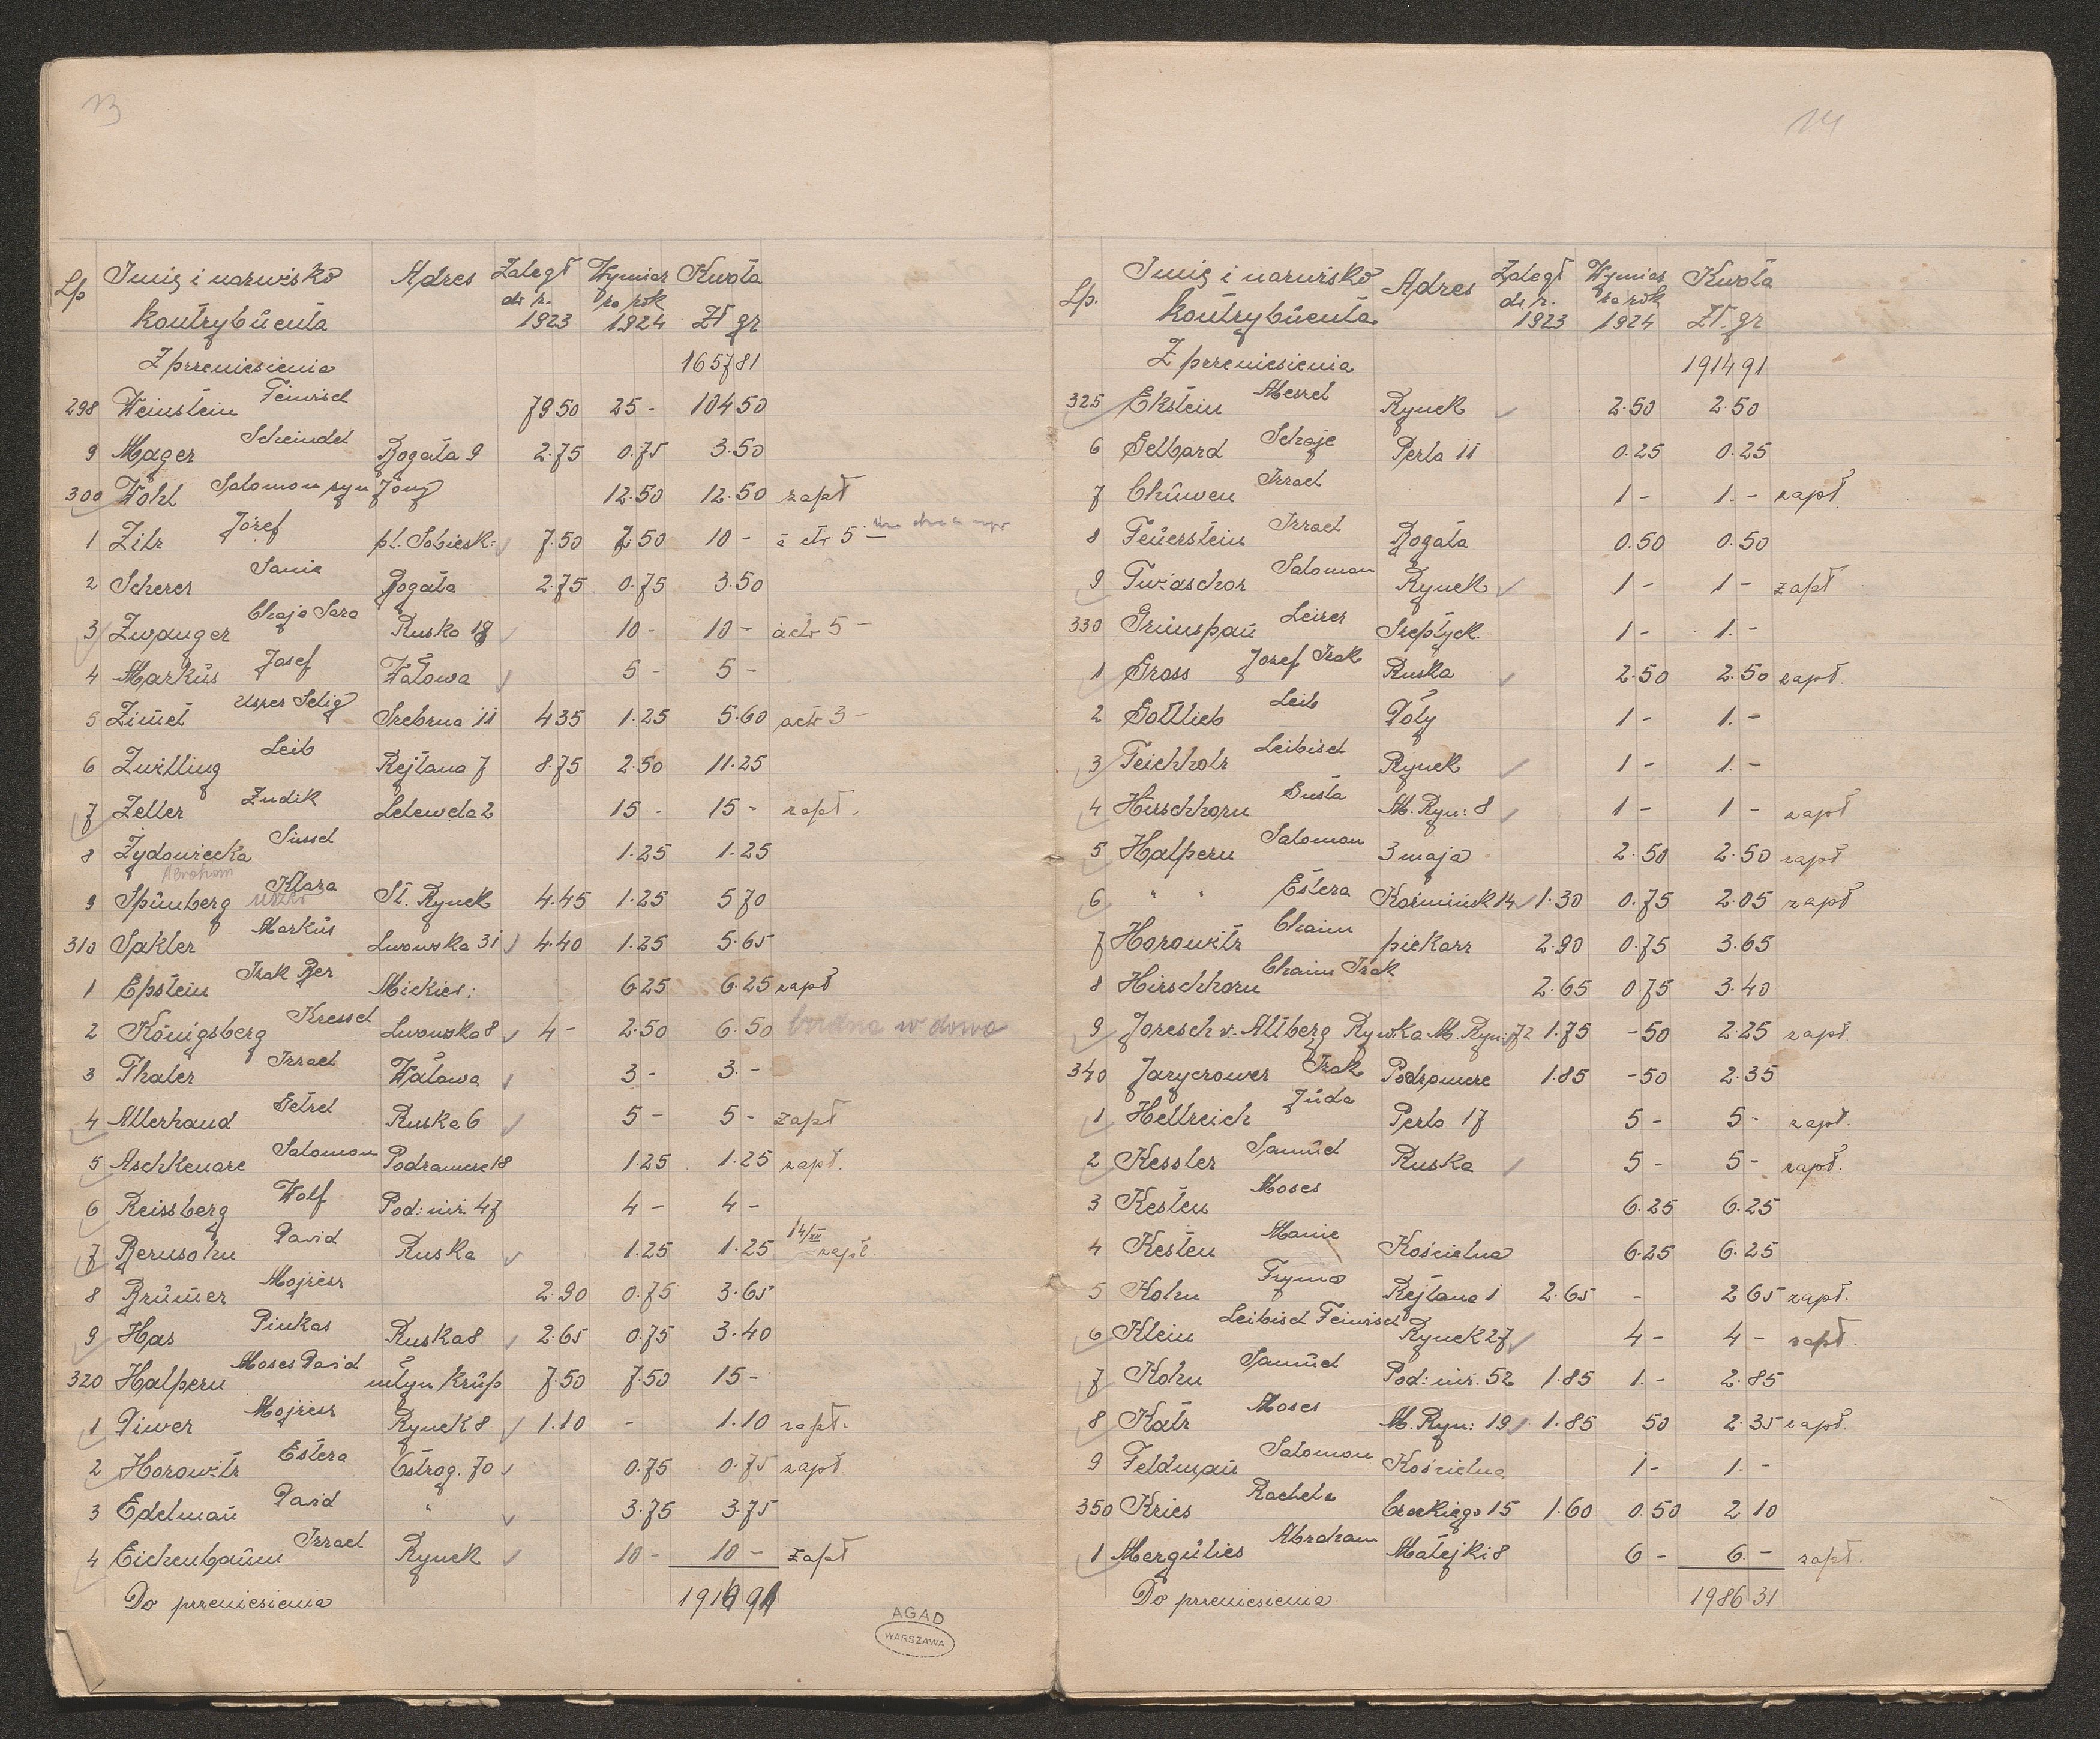 13
Lp Imię i nazwisko kontrybuenta Adres Zaległ do r. 1923 Wymiar za rok 1924 Kwota Zł gr
Z przeniesienia 1657 81
298 Weinstein Feiwisch 79 50 25 - 104 50
9 Mager Scheindel Bogata 9 2.75 0.75 3.50
300 Wohl Salomon syn Jony 12.50 12.50 zapł
1 Zitz Józef pl. Sobiesk: 7.50 2.50 10 - à cto 5 -
2 Scherer Sanie Bogata 2.75 0.75 3.50
3 Zwanger Chaja Sara Ruska 18 10 - 10 - à cto 5 -
4 Markus Josef Wałowa 5 - 5 -
5 Zimet Usher Selig Srebrna 11 4 35 1.25 5.60 à cto 3 -
6 Zwilling Leib Rejtana 7 8.75 2.50 11.25
7 Zeller Zudik Lelewela 2 15 - 15 - zapł.
8 Żydowiecka Sussel 1.25 1.25
Abraham
9 Spünberg Klara St. Rynek 4.45 1.25 5 70
310 Sakler Markus Lwowska 31 4.40 1.25 5.65
1 Epstein Izak Ber Mickiew: 6 25 6.25 zapł
2 Königsberg Kressel Lwowska 8 4 - 2.50 6.50 biedna wdowa
3 Thaler Izrael Wałowa 3 - 3. -
4 Allerhand Getzel Ruska 6 5 - 5 - zapł
5 Aschkenaze Salomon Podzamcze 18 1.25 1.25 zapł.
6 Reissberg Wolf Pod: niż. 47 4 - 4 -
7 Bernsohn David Ruska 1.25 1.25 14/XII zapł.
8 Brümer Mojżesz 2.90 0.75 3.65
9 Has Pinkas Ruska 8 2.65 0.75 3.40
320 Halpern Moses David młyn Krup 7.50 7.50 15 -
1 Diwer Mojżesz Rynek 8 1.10 - 1.10 zapł.
2 Horowitz Estera Ostrog. 70 0.75 0.75 zapł.
3 Edelman David " 3.75 3.75
4 Eichenbaum Izrael Rynek 10 - 10 - zapł
Do przeniesienia 1914 91
AGAD
WARSZAWA
14
Lp. Imię i nazwisko kontrybuenta Adres Zaległ do r. 1923 Wymiar za rok 1924 Kwota Zł. gr
Z przeniesienia 1914 91
325 Ekstein Meszel Rynek 2.50 2.50
6 Gelbard Schaje Perla 11 0.25 0.25
7 Chuwen Izrael 1 - 1. - zapł.
8 Feuerstein Izrael Bogata 0.50 0.50
9 Twiaschor Salomon Rynek 1 - 1 - zapł
330 Grünspan Leizer Szeptyck. 1 - 1. -
1 Gross Jozef Izak Ruska 2.50 2.50 zapł.
2 Gottlieb Leib Doły 1 - 1. -
3 Teichholz Leibisch Rynek 1 - 1. -
4 Hirschhorn Gusta M. Ryn: 8 1 - 1 - zapł
5 Halpern Salomon 3 maja 2.50 2.50 zapł
6 " " Estera Kozmińsk 14 1.30 0.75 2.05 zapł
7 Horowitz Chaim piekarz 2.90 0.75 3.65
8 Hirschhorn Chaim Izak 2.65 0.75 3.40
9 Joresch v. Altberg Rywka M. Ryn. 72 1.75 - 50 2.25 zapł.
340 Jaryczower Izak Podzamcze 1.85 - 50 2.35
1 Hellreich Juda Perla 17 5 - 5 - zapł.
2 Kessler Samuel Ruska 5 - 5 - zapł.
3 Kesten Moses 6.25 6.25
4 Kesten Manie Kościelna 6.25 6.25
5 Kohn Fryma Rejtana 1 2.65 - 2 65 zapł.
6 Klein Leibisch Feiwisch Rynek 27 4 - 4 - zapł.
7 Kohn Samuel Pod: niż. 52 1.85 1. - 2.85
8 Katz Moses M. Ryn: 19 1.85 50 2.35 zapł.
9 Feldman Salomon Kościelna 1 - 1. -
350 Kries Rachela Czackiego 15 1.60 0.50 2 10
1 Mergulies Abraham Matejki 8 6 - 6. - zapł.
Do przeniesienia 1986 31